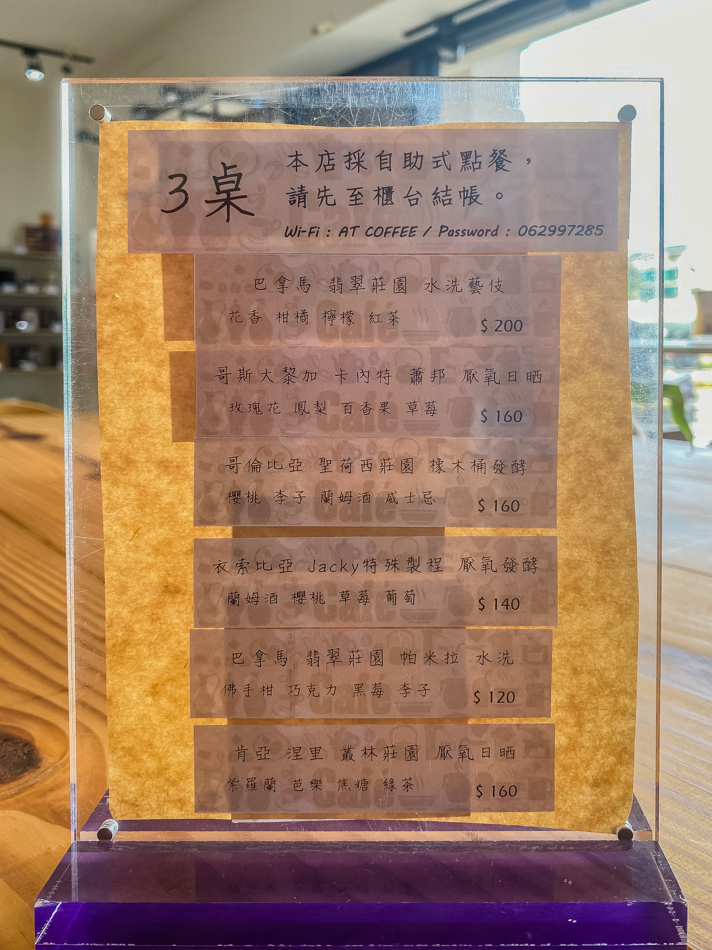 3桌
本店採自助式點餐，
請先至櫃台結帳。
Wi-Fi : AT COFFEE / Password : 062997285
巴拿馬 翡翠莊園 水洗藝伎
花香 柑橘 檸檬 紅茶 $ 200
哥斯大黎加 卡內特 蕭邦 厭氧日晒
玫瑰花 鳳梨 百香果 草莓 $ 160
哥倫比亞 聖荷西莊園 橡木桶發酵
櫻桃 李子 蘭姆酒 威士忌 $ 160
衣索比亞 Jacky特殊製程 厭氧發酵
蘭姆酒 櫻桃 草莓 葡萄 $ 140
巴拿馬 翡翠莊園 帕米拉 水洗
佛手柑 巧克力 黑莓 李子 $ 120
肯亞 涅里 叢林莊園 厭氧日晒
紫羅蘭 芭樂 焦糖 綠茶 $ 160